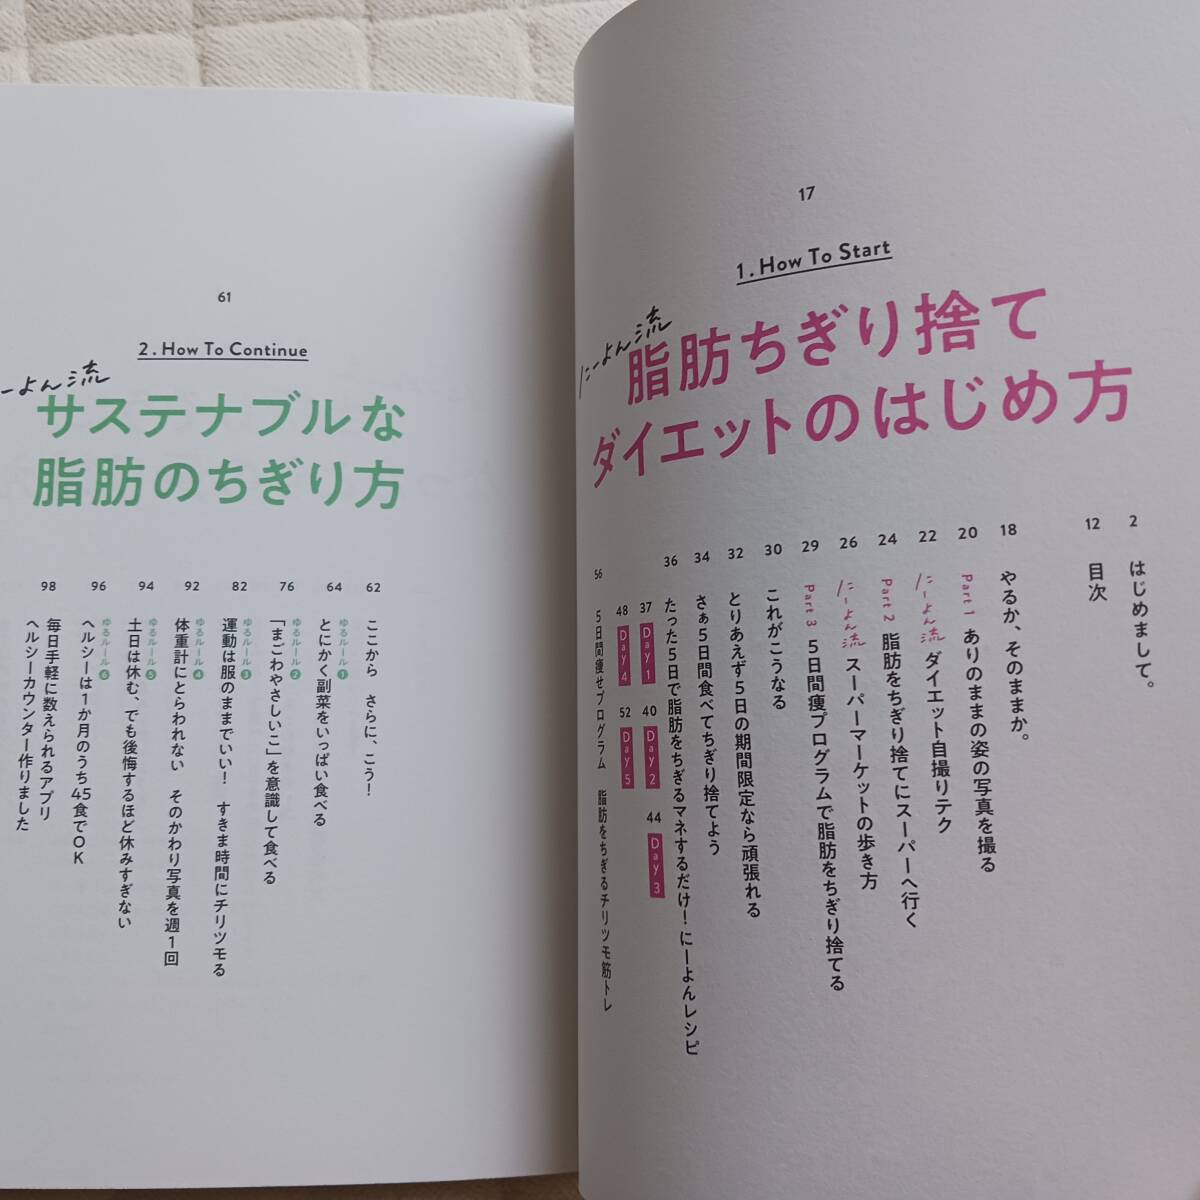 17
1. How To Start
にーよん流
脂肪ちぎり捨て
ダイエットのはじめ方
2 はじめまして。
12 目次
18 やるか、そのままか。
20 Part 1 ありのままの姿の写真を撮る
22 にーよん流 ダイエット自撮りテク
24 Part 2 脂肪をちぎり捨てにスーパーへ行く
26 にーよん流 スーパーマーケットの歩き方
29 Part 3 5日間痩プログラムで脂肪をちぎり捨てる
30 これがこうなる
32 とりあえず5日の期間限定なら頑張れる
34 さぁ5日間食べてちぎり捨てよう
36 たった5日で脂肪をちぎるマネするだけ！にーよんレシピ
37 Day 1
40 Day 2
44 Day 3
48 Day 4
52 Day 5
56 5日間痩せプログラム 脂肪をちぎるチリツモ筋トレ
61
2. How To Continue
ーよん流
サステナブルな
脂肪のちぎり方
62 ここから さらに、こう！
64 ゆるルール1 とにかく副菜をいっぱい食べる
76 ゆるルール2 「まごわやさしいこ」を意識して食べる
82 ゆるルール3 運動は服のままでいい！ すきま時間にチリツモる
92 ゆるルール4 体重計にとらわれない そのかわり写真を週1回
94 ゆるルール5 土日は休む、でも後悔するほど休みすぎない
96 ゆるルール6 ヘルシーは1か月のうち45食でOK
98 毎日手軽に数えられるアプリ
ヘルシーカウンター作りました